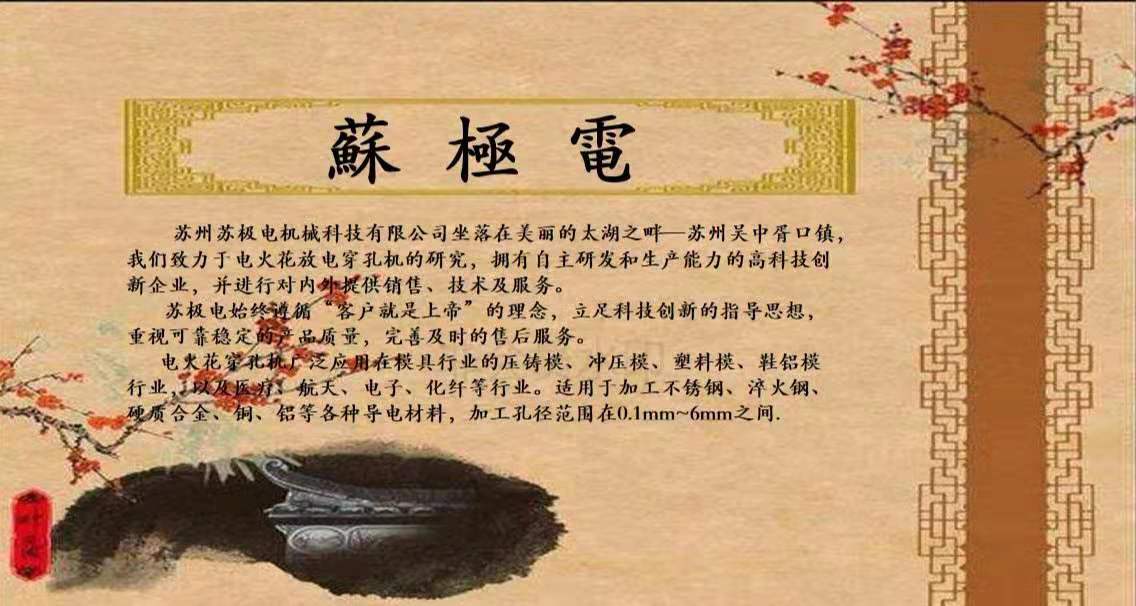 蘇極電
苏州苏极电机械科技有限公司坐落在美丽的太湖之畔—苏州吴中胥口镇，
我们致力于电火花放电穿孔机的研究，拥有自主研发和生产能力的高科技创
新企业，并进行对内外提供销售、技术及服务。
苏极电始终遵循“客户就是上帝”的理念，立足科技创新的指导思想，
重视可靠稳定的产品质量，完善及时的售后服务。
电火花穿孔机广泛应用在模具行业的压铸模、冲压模、塑料模、鞋铝模
行业，以及医疗、航天、电子、化纤等行业。适用于加工不锈钢、淬火钢、
硬质合金、铜、铝等各种导电材料，加工孔径范围在0.1mm~6mm之间.